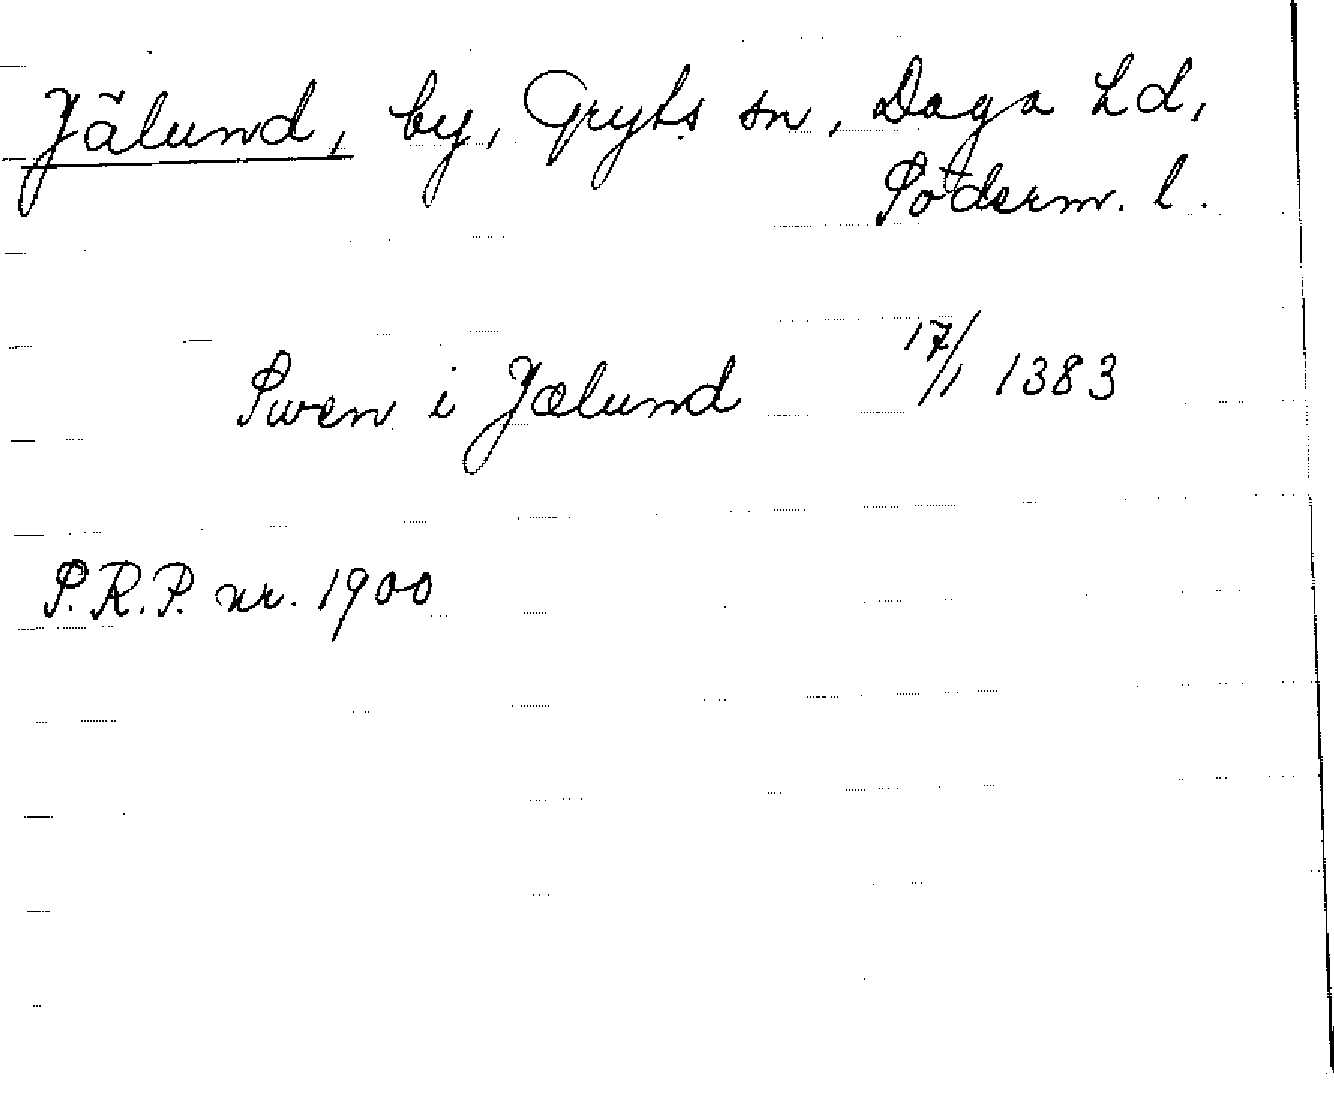 Jälund, by, Gryts sn, Daga hd,
Söderm. l.
Swen i Jælund 17/1 1383
S.R.P. nr. 1900